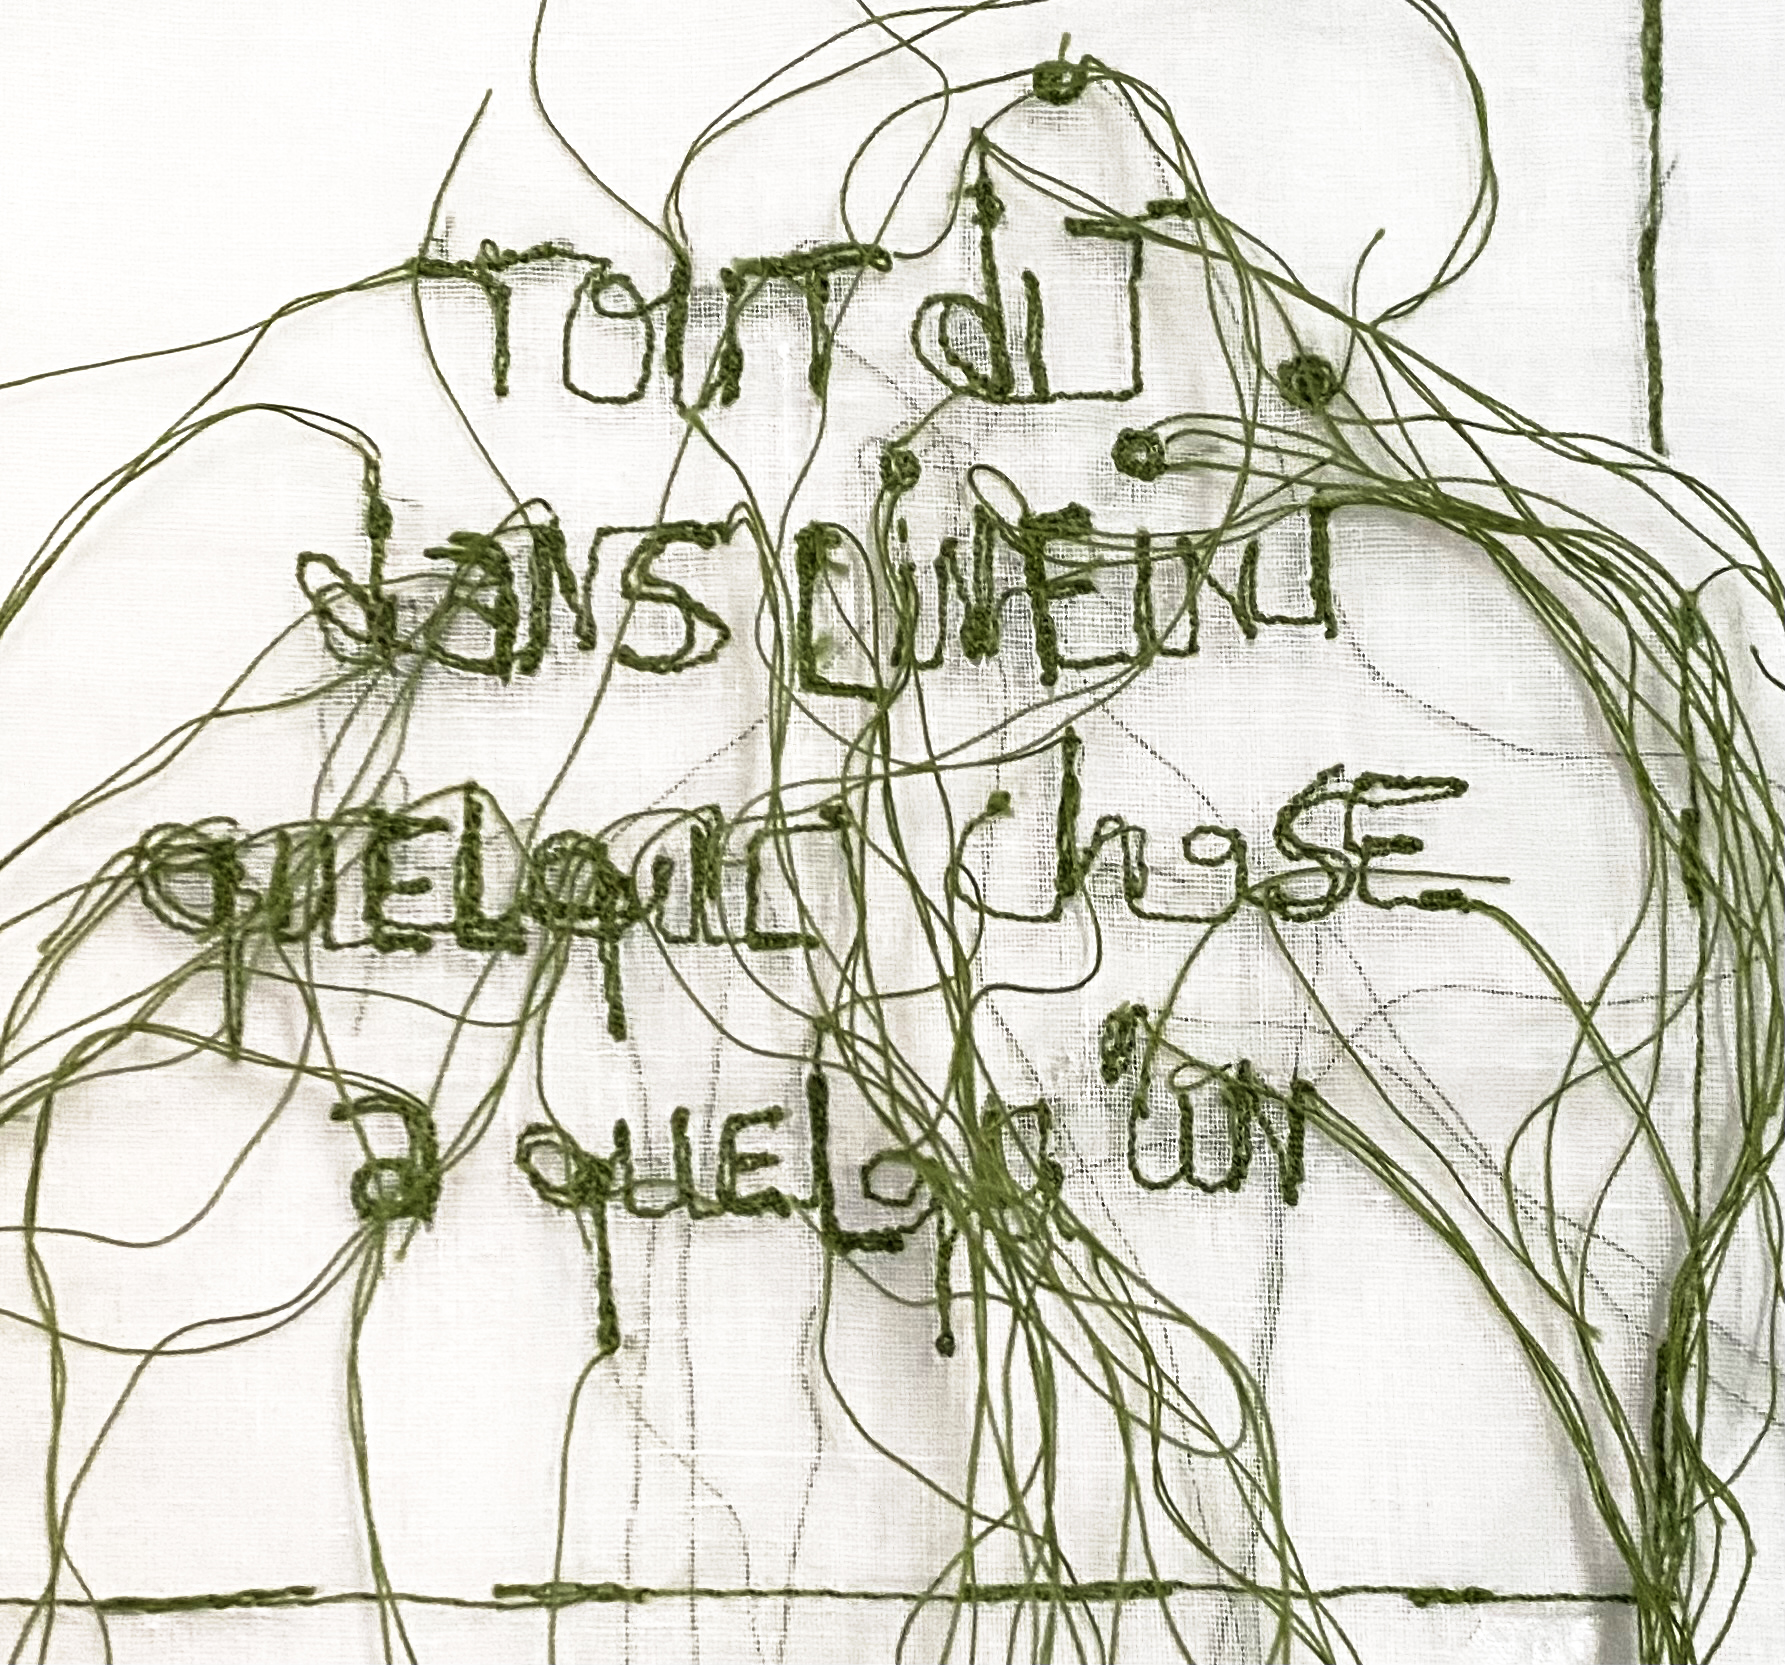 TOUT dIT
dANS L'iNFINI
quELquE choSE
à quELqu'uN